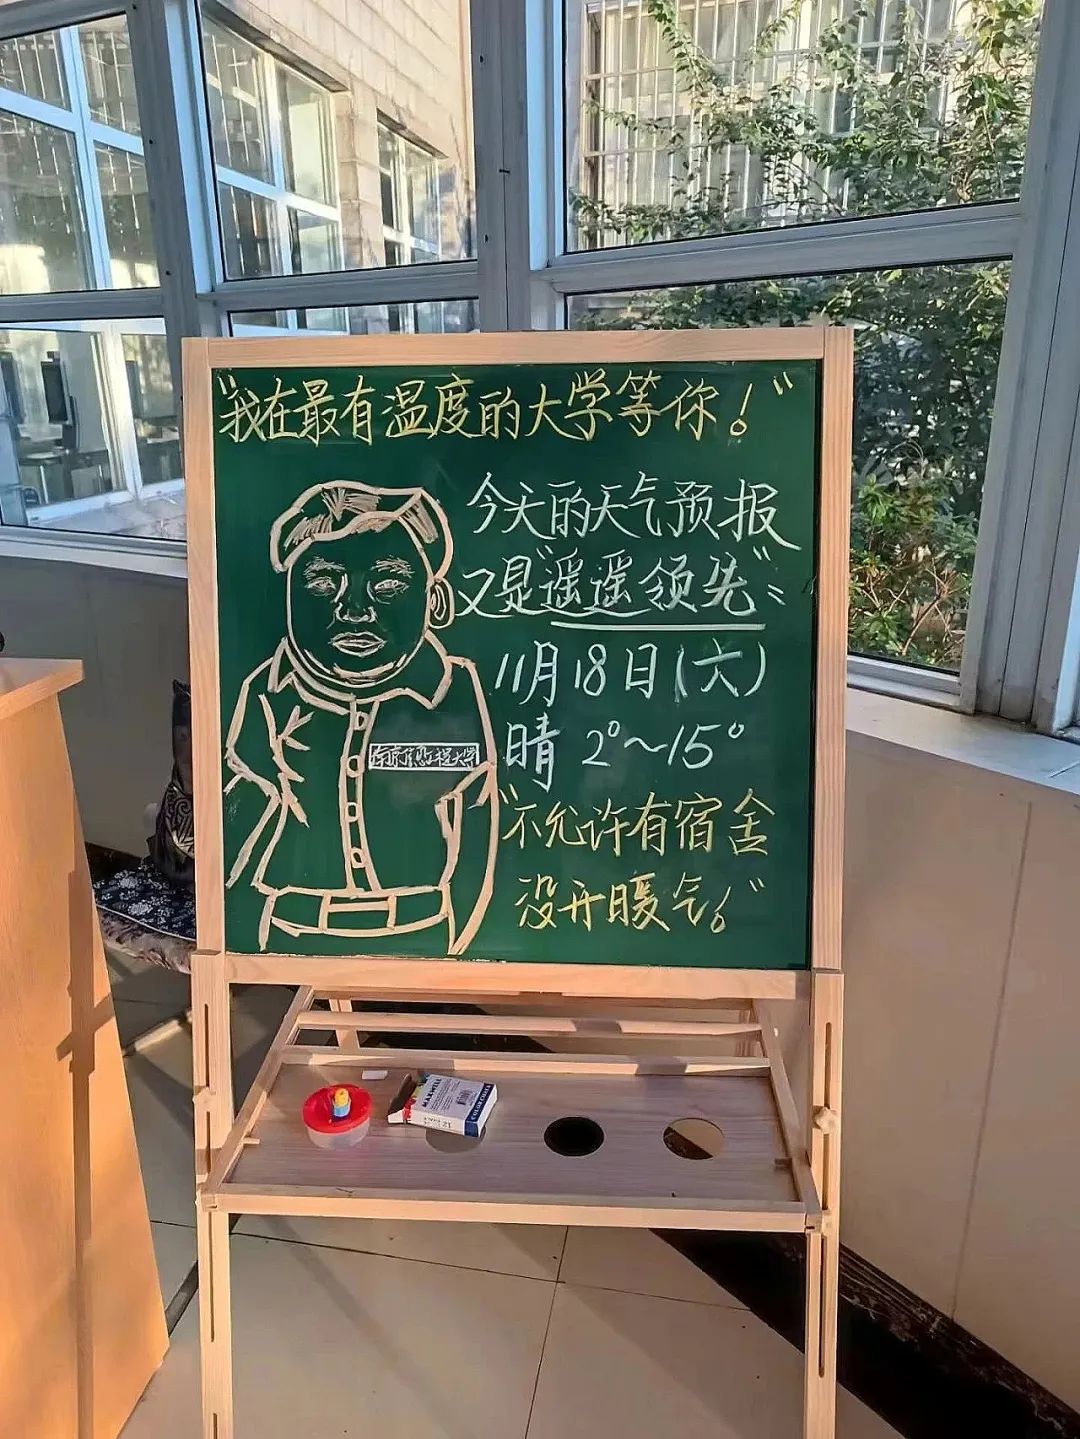 "我在最有温度的大学等你！"
今天的天气预报
又是"遥遥领先"
11月18日(六)
晴 2°~15°
"不允许有宿舍
没开暖气！"
工程大学
MAXWELL
COLOR CHALK
12